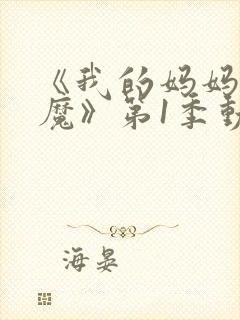 《我的妈妈
魔》第1季動
海晏